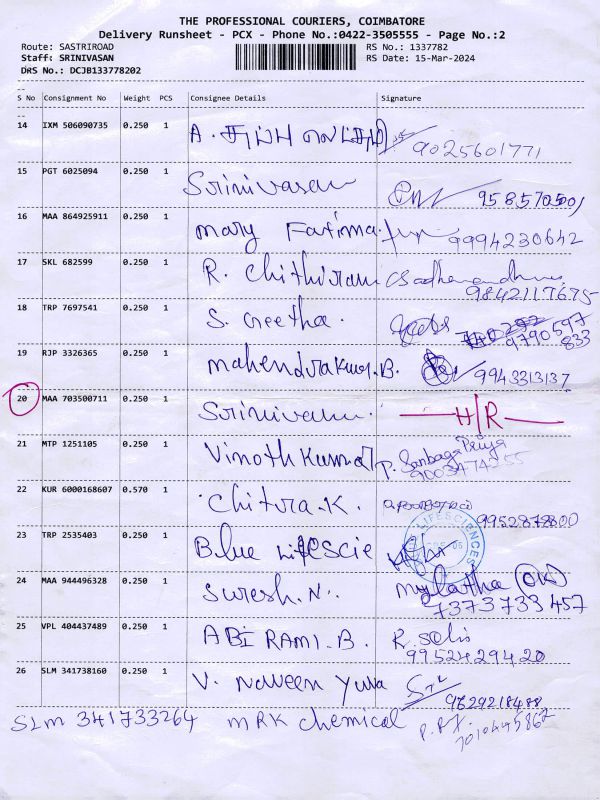 THE PROFESSIONAL COURIERS, COIMBATORE
Delivery Runsheet - PCX - Phone No.:0422-3505555 - Page No.:2
Route: SASTRIROAD RS No.: 1337782
Staff: SRINIVASAN RS Date: 15-Mar-2024
DRS No.: DCJB133778202
S No Consignment No Weight PCS Consignee Details Signature
14 IXM 506090735 0.250 1 A. 9025601771
15 PGT 6025094 0.250 1 Srinivasan 9585705001
16 MAA 864925911 0.250 1 Mary Fatima. 9994230642
17 SKL 682599 0.250 1 R. Chithiram 9842117675
18 TRP 7697541 0.250 1 S. Geetha. 9790597
833
19 RJP 3326365 0.250 1 Mahendrakumar.B. 9943313137
20 MAA 703500711 0.250 1 Srinivasan. H/R
21 MTP 1251105 0.250 1 Vinothkumar P. Sanbaga Priya
9003474255
22 KUR 6000168607 0.570 1 Chitra.K. 9952878800
23 TRP 2535403 0.250 1 Blue Lifescie LIFESCIENCES
24 MAA 944496328 0.250 1 Suresh.N. Mylatha
7373733457
25 VPL 404437489 0.250 1 ABIRAMI.B. R. Selvi
9952429420
26 SLM 341738160 0.250 1 V. Naveen Yuva 9629218488
SLM 341733264 MRK Chemical 7010445862